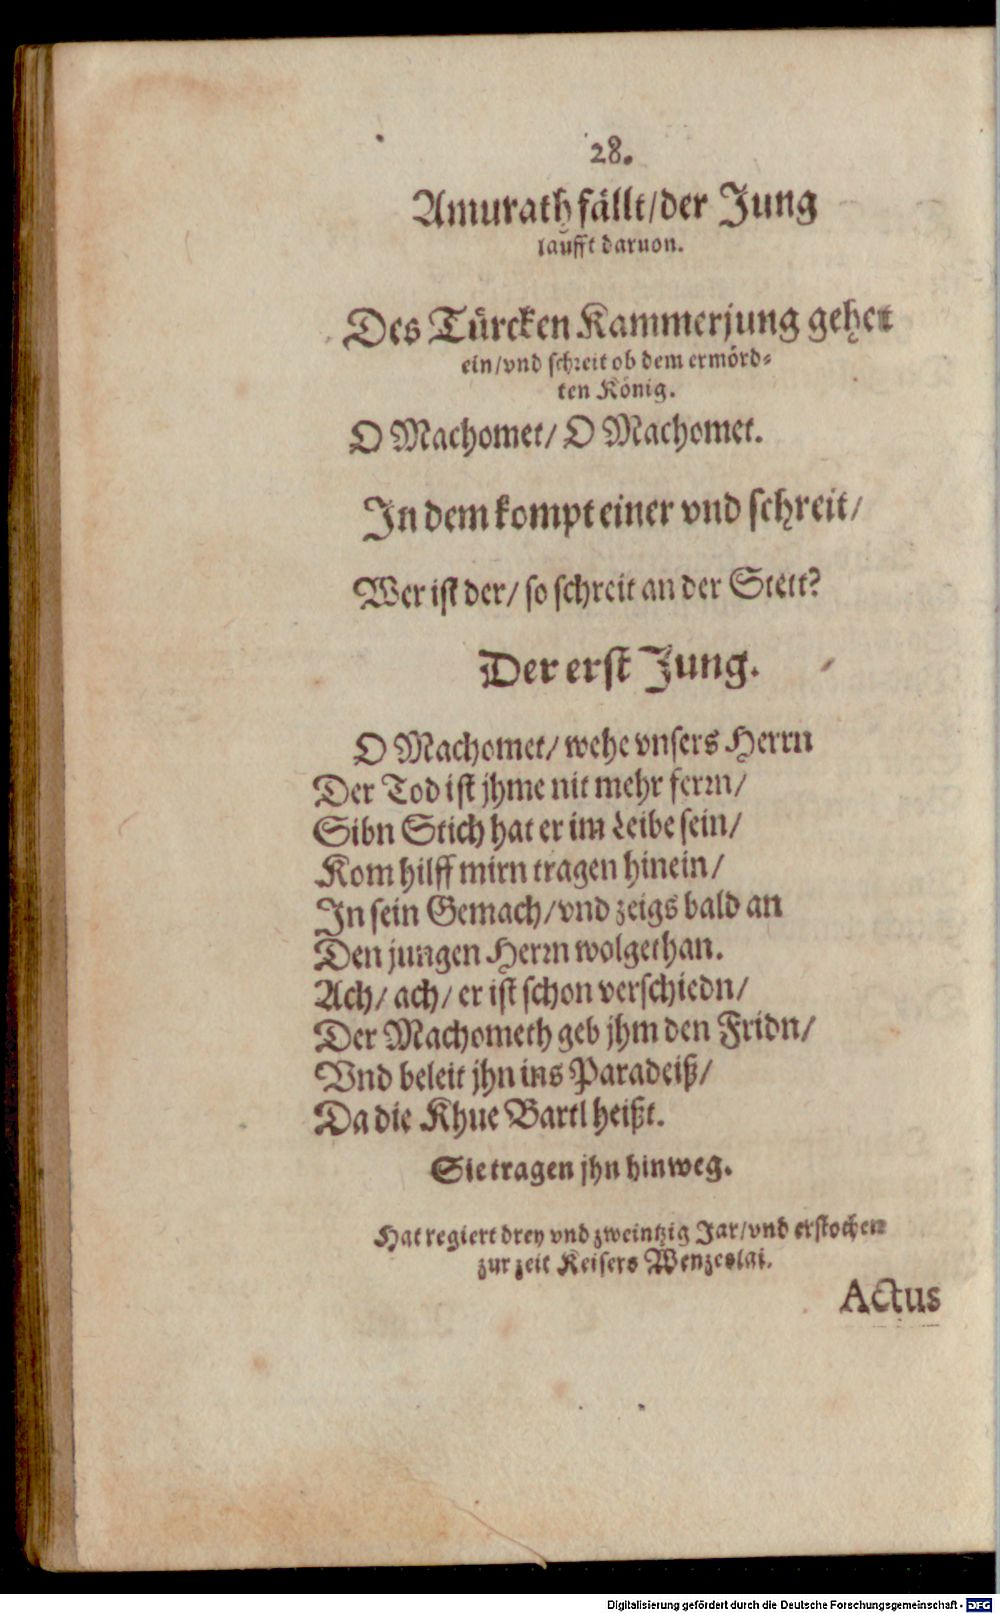 28.
Amurath fällt/der Jung
laufft daruon.
Des Türcken Kammerjung gehet
ein/vnd schreit ob dem ermörd-
ten König.
O Machomet/ O Machomet.
In dem kompt einer vnd schreit/
Wer ist der/ so schreit an der Stett?
Der erst Jung.
O Machomet/ wehe vnsers Herrn
Der Tod ist jhme nit mehr ferrn/
Sibn Stich hat er im Leibe sein/
Kom hilff mirn tragen hinein/
In sein Gemach/vnd zeigs bald an
Den jungen Herrn wolgethan.
Ach/ ach/ er ist schon verschiedn/
Der Machometh geb jhm den Fridn/
Vnd beleit jhn ins Paradeiß/
Da die Khue Bartl heißt.
Sie tragen jhn hinweg.
Hat regiert drey vnd zweintzig Jar/vnd erstochen
zur zeit Keisers Wenzeslai.
Actus
Digitalisierung gefördert durch die Deutsche Forschungsgemeinschaft - DFG